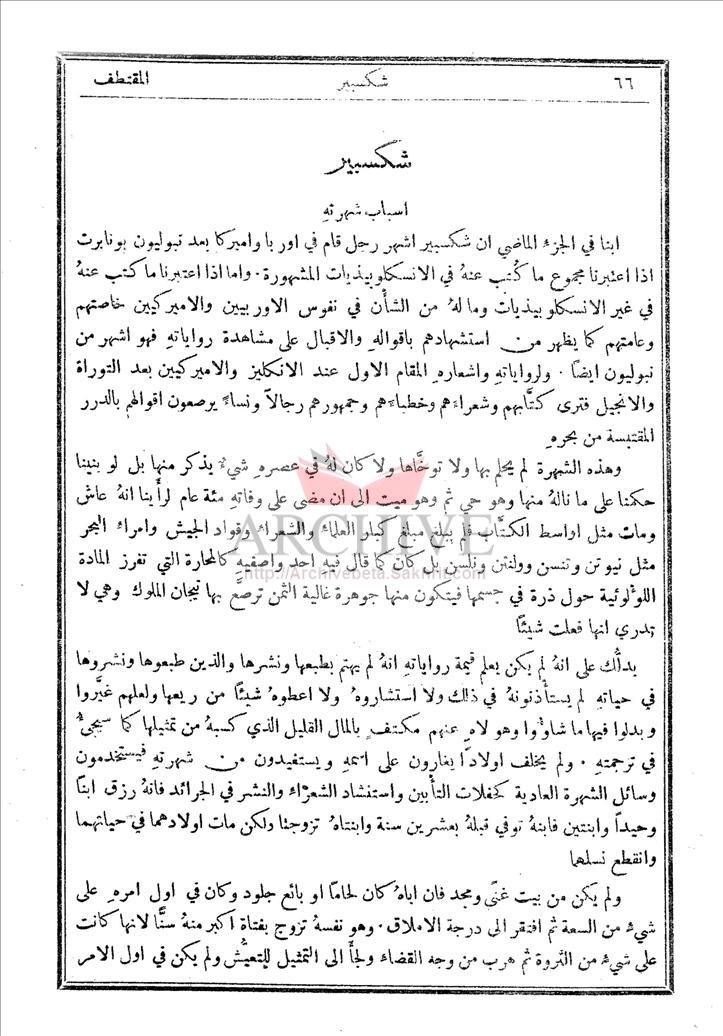 ٦٦ شكسبير المقتطف
شكسبير
اسباب شهرتهِ
ابنا في الجزء الماضي ان شكسبير اشهر رجل قام في اوربا واميركا بعد نبوليون بونابرت
اذا اعتبرنا مجموع ما كُتب عنهُ في الانسكلوبيذيات المشهورة . واما اذا اعتبرنا ما كتب عنهُ
في غير الانسكلوبيذيات وما لهُ من الشأن في نفوس الاوربيين والاميركيين خاصتهم
وعامتهم كما يظهر من استشهادهم باقوالهِ والاقبال على مشاهدة رواياتهِ فهو اشهر من
نبوليون ايضًا . ولرواياتهِ واشعارهِ المقام الاول عند الانكليز والاميركيين بعد التوراة
والانجيل فترى كتَّابهم وشعراءَهم وخطباءَهم وجمهورهم رجالاً ونساءً يرصعون اقوالهم بالدرر
المقتبسة من بحرهِ
وهذه الشهرة لم يحلم بها ولا توخَّاها ولا كان لهُ في عصرهِ شيءٌ يذكر منها بل لو بنينا
حكمنا على ما نالهُ منها وهو حي ثم وهو ميت الى ان مضى على وفاتهِ مئة عام لرأينا انهُ عاش
ومات مثل اواسط الكتَّاب فلم يبلغ مبلغ كبار العلماء والشعراء وقواد الجيش وامراء البحر
مثل نيوتن وتنسن وولنتن ونلسن بل كان كما قال فيهِ احد واصفيهِ كالمحارة التي تفرز المادة
اللؤلوئية حول ذرة في جسمها فيتكون منها جوهرة غالية الثمن ترصع بها تيجان الملوك وهي لا
تدري انها فعلت شيئًا
يدلُّك على انهُ لم يكن يعلم قيمة رواياتهِ انهُ لم يهتم بطبعها ونشرها والذين طبعوها ونشروها
في حياتهِ لم يستأذنونهُ في ذلك ولا استشاروهُ ولا اعطوهُ شيئًا من ريعها ولعلهم غيَّروا
وبدلوا فيها ما شاؤوا وهو لاهٍ عنهم مكتفٍ بالمال القليل الذي كسبهُ من تمثيلها كما سيجيءُ
في ترجمتهِ . ولم يخلف اولادًا يغارون على اسمهِ ويستفيدون من شهرتهِ فيستخدمون
وسائل الشهرة العادية كحفلات التأبين واستنشاد الشعراء والنشر في الجرائد فانهُ رزق ابنًا
وحيدًا وابنتين فابنهُ توفي قبلهُ بعشرين سنة وابنتاهُ تزوجتا ولكن مات اولادهما في حياتهما
وانقطع نسلهما
ولم يكن من بيت غنًى ومجد فان اباهُ كان لحامًا او بائع جلود وكان في اول امرهِ على
شيءٍ من السعة ثم افتقر الى درجة الاملاق . وهو نفسهُ تزوج بفتاة اكبر منهُ سنًّا لانها كانت
على شيءٍ من الثروة ثم هرب من وجه القضاء ولجأ الى التمثيل للتعيُّش ولم يكن في اول الامر
ARCHIVE
http://Archivebeta.Sakhrit.com